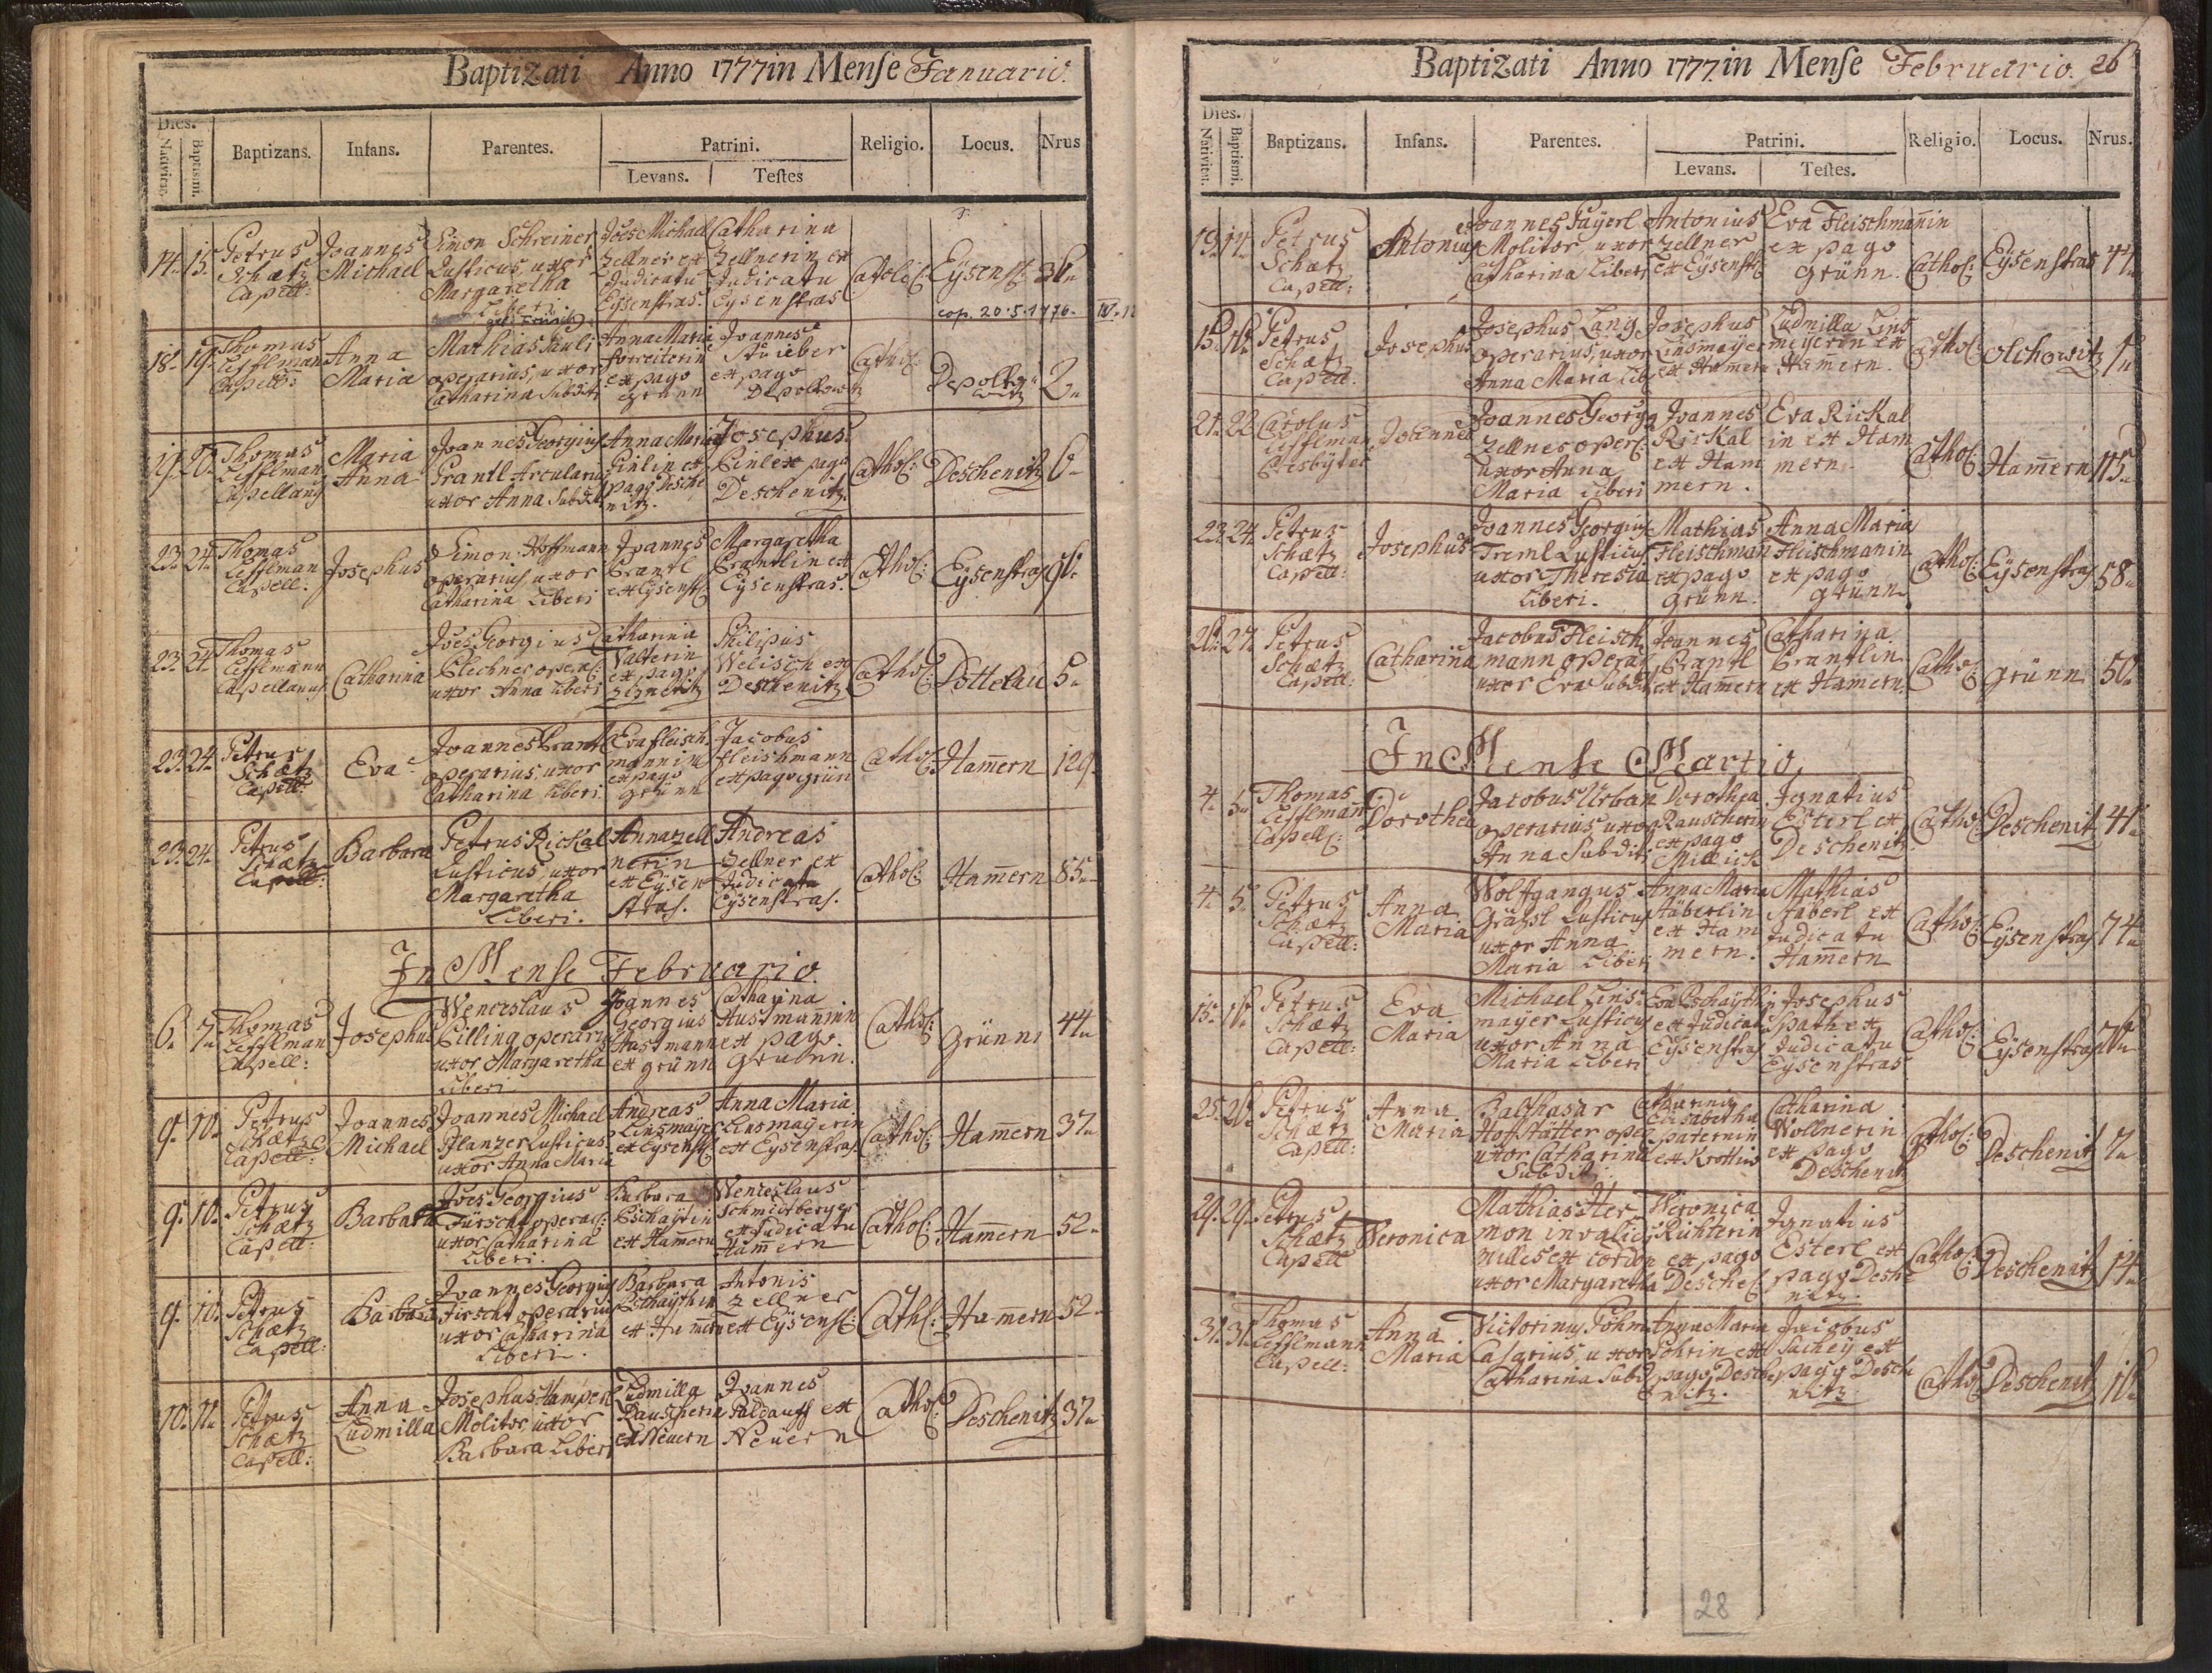 Baptizati Anno 1777 in Mense Januario.
Dies.
Nativitat. Baptismi. Baptizans. Infans. Parentes. Patrini. Religio. Locus. Nrus
Levans. Testes
14. 15. Petrus Schætz Capell: Joannes Michael Simon Schreiner Rusticus, uxor Margaretha Liberi Joes Michael Zellner ex Judicatu Eysenstras. Catharina Zellnerin ex Judicatu Eysenstras Catolic: Eysenst: 36
cop. 20.5.1776.
18. 19. Thomas Lefflman Capell: Anna Maria Mathias Pauli operarius, uxor Catharina Subditi Anna Maria Forreiterin ex pago Grünn Joannes Stuieber ex pago Depoltowitz Cathol: Depoltowitz 2
19. 20. Thomas Lefflman Capellanus Maria Anna Joannes Georgius Prantl Arcularius uxor Anna Subditi Anna Maria ex pago Deschenitz. Josephus ex pago Deschenitz. Cathol: Deschenitz 6
23. 24. Thomas Lefflman Capell: Josephus Simon Hoffmann operarius, uxor Catharina Liberi Joannes Brantl ex Eysenst: Margaretha Brantlin ex Eysenstras. Cathol: Eysenstras
23. 24. Thomas Lefflmann Capellanus Catharina Joes Georgius Blechner oper: uxor Anna Liberi Catharina Valterin ex pago Philipus Welisch ex Deschenitz Cathol: Dottelau 5
23. 24. Petrus Schætz Capell: Eva Joannes Brantl operarius, uxor Catharina Liberi. Eva Fleischmannin ex pago Grünn Jacobus Fleishmann ex pago Grün Cathol: Ham̄ern 129.
23. 24. Petrus Schætz Capell: Barbara Petrus Rickal Rusticus, uxor Margaretha Liberi. Anna Zellnerin ex Eysenstras. Andreas Zellner ex Judicatu Eysenstras. Cathol: Ham̄ern 85.
In Mense Februario.
6. 7. Thomas Lefflman Capell: Josephus Wenceslaus Pilling operarius uxor Margaretha Liberi Joannes Georgius Hustmann ex Grünn Catharina Hustmaninn ex pago Grünn. Cathol: Grünn 44
9. 10. Petrus Schætz Capell: Joannes Michael Joannes Michael Pflanzer Rusticus uxor Anna Maria Andreas Linsmayer ex Eysenst: Anna Maria Linsmayerin ex Eysenstras. Cathol: Ham̄ern 37
9. 10. Petrus Schætz Capell: Barbara Joes Georgius Fürscht operar: uxor Catharina Liberi. Barbara ex Ham̄ern Wenceslaus Schmidtberger ex Judicatu Ham̄ern Cathol: Ham̄ern 52.
9. 10. Petrus Schætz Capell: Barbara Joannes Georgius Firscht operarius uxor Catharina Liberi. Barbara ex Ham̄ern Antonis Zellner ex Eysenst: Cath: Ham̄ern 52.
10. 11. Petrus Schætz Capell: Anna Ludmilla Josephus Hamperl Molitor, uxor Barbara Liberi Ludmilla Rauscherin ex Neuern Joannes Paldauff ex Neuern Cathol: Deschenitz 37
Baptizati Anno 1777. in Mense Februario. 26
Dies.
Nativitat. Baptismi. Baptizans. Infans. Parentes. Patrini. Religio. Locus. Nrus.
Levans. Testes.
13. 14. Petrus Schætz Capell: Antonius Joannes Payerl Molitor, uxor Catharina Liberi Antonius Zellner ex Eysenst: Eva Fleischman̄in ex pago Grünn. Cathol: Eysenstras 44
15. 16. Petrus Schætz Capell: Josephus Josephus Lang operarius, uxor Anna Maria Lib: Josephus Linsmayer ex Ham̄ern Ludmilla Linsmeyerin ex Ham̄ern. Cathol: Olchowitz 1
21. 22. Carolus Lefflman Presbyter Joannes Joannes Georg: Zellner oper: uxor Anna Maria Liberi Joannes Rickal ex Hammern. Eva Rickalin ex Hammern. Cathol: Ham̄ern 115.
23. 24. Petrus Schætz Capell: Josephus Joannes Georgius Treml Rusticus uxor Theresia Liberi. Mathias Fleischman ex pago Grünn. Anna Maria Fleischmanin ex pago Grünn. Cathol: Eysenstras 58.
26. 27. Petrus Schætz Capell: Catharina Jacobus Fleischmann operar: uxor Eva Subditi Joannes Brantl ex Ham̄ern Catharina Brantlin ex Ham̄ern. Cathol: Grünn 50.
In Mense Martio.
4. 5. Thomas Lefflman̄ Capell: Dorothea Jacobus Urban operarius, uxor Anna Subditi Dorothea Rauscherin ex pago Millick Ignatius Esterl ex Deschenitz. Cathol: Deschenitz 41.
4. 5. Petrus Schætz Capell: Anna Maria Wolffgangus Gräsl Rusticus uxor Anna Maria Liberi Anna Maria Stäberlin ex Hammern. Mathias Stäberl ex Judicatu Ham̄ern Cathol: Eysenstras 74
15. 16. Petrus Schætz Capell: Eva Maria Michael Linsmayer Rusticus uxor Anna Maria Liberi Eva ex Judicatu Eysenstras Josephus Späth ex Judicatu Eysenstras Cathol: Eysenstras
25. 26. Petrus Schætz Capell: Anna Maria Balthasar Hoffstätter oper: uxor Catharina Subditi Catharina Elisabetha Paternin ex Catharina Wollnerin ex pago Deschenitz Cathol: Deschenitz 7
29. 29. Petrus Schætz Capell Veronica Mathias Hermon invalid: miles ex cordon uxor Margaretha Weronica Richterin ex pago Desche: Ignatius Esterl ex pago Deschenitz. Cathol: Deschenitz 14
31. 31. Thomas Lefflmann Capell: Anna Maria Victorinus Böhm Casarius, uxor Catharina Subd: Anna Maria ex pago Deschenitz. Jacobus Sachey ex pago Deschenitz. Cathol: Deschenitz
28